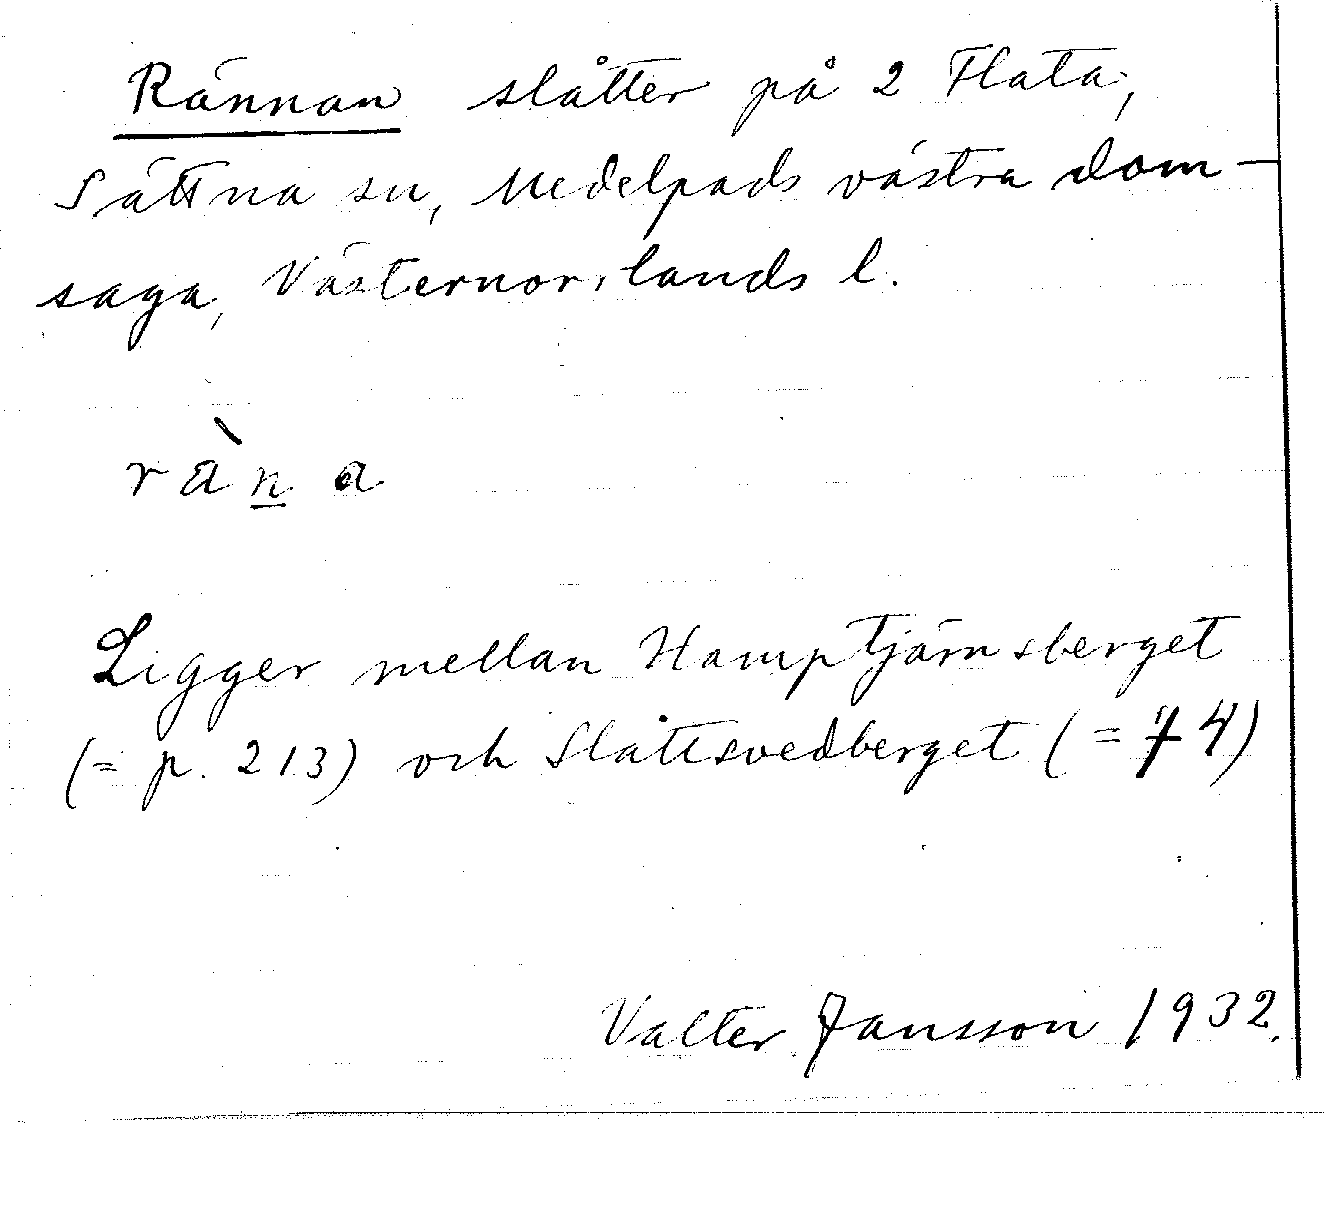 Rännan slåtter på 2 Flata,
Sättna sn, Medelpads västra dom-
saga, Västernorrlands l.
ràn̲a
Ligger mellan Hamptjärnsberget
(= p. 213) och Slåttsvedberget (= 74)
Valter Jansson 1932.